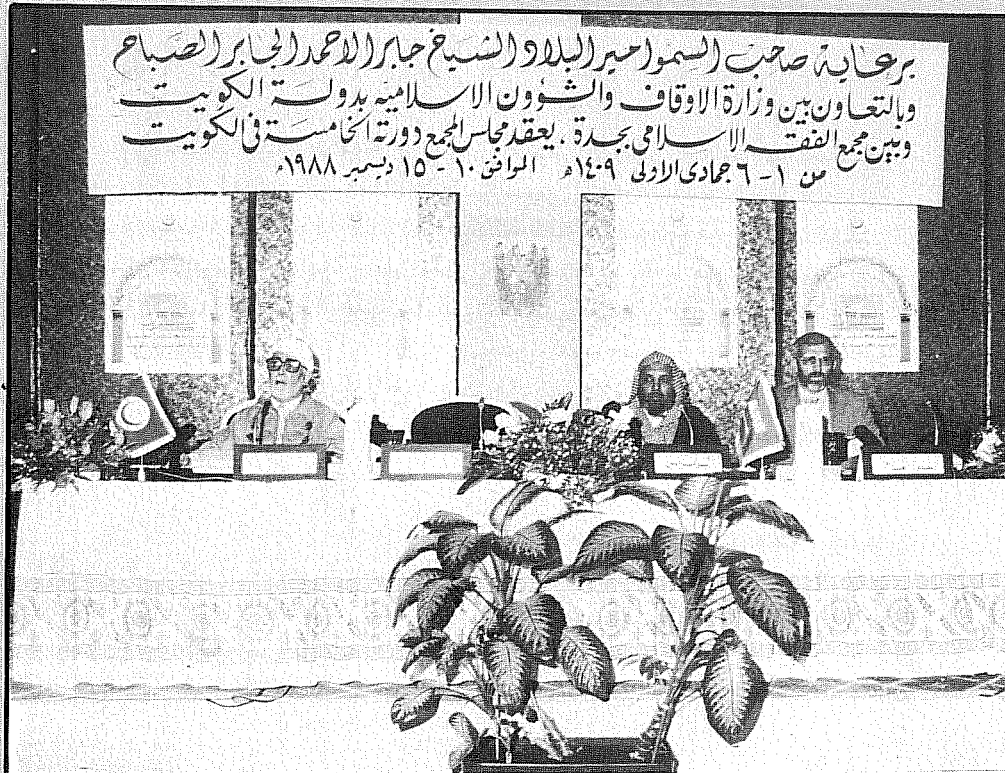 برعاية صاحب السمو امير البلاد الشيخ جابر الاحمد الجابر الصباح
وبالتعاون بين وزارة الاوقاف والشؤون الاسلاميه بدولة الكويت
وبين مجمع الفقه الاسلامى بجدة ، يعقد مجلس المجمع دورته الخامسة فى الكويت
من ١ - ٦ جمادى الاولى ١٤٠٩هـ الموافق ١٠ - ١٥ ديسمبر ١٩٨٨م